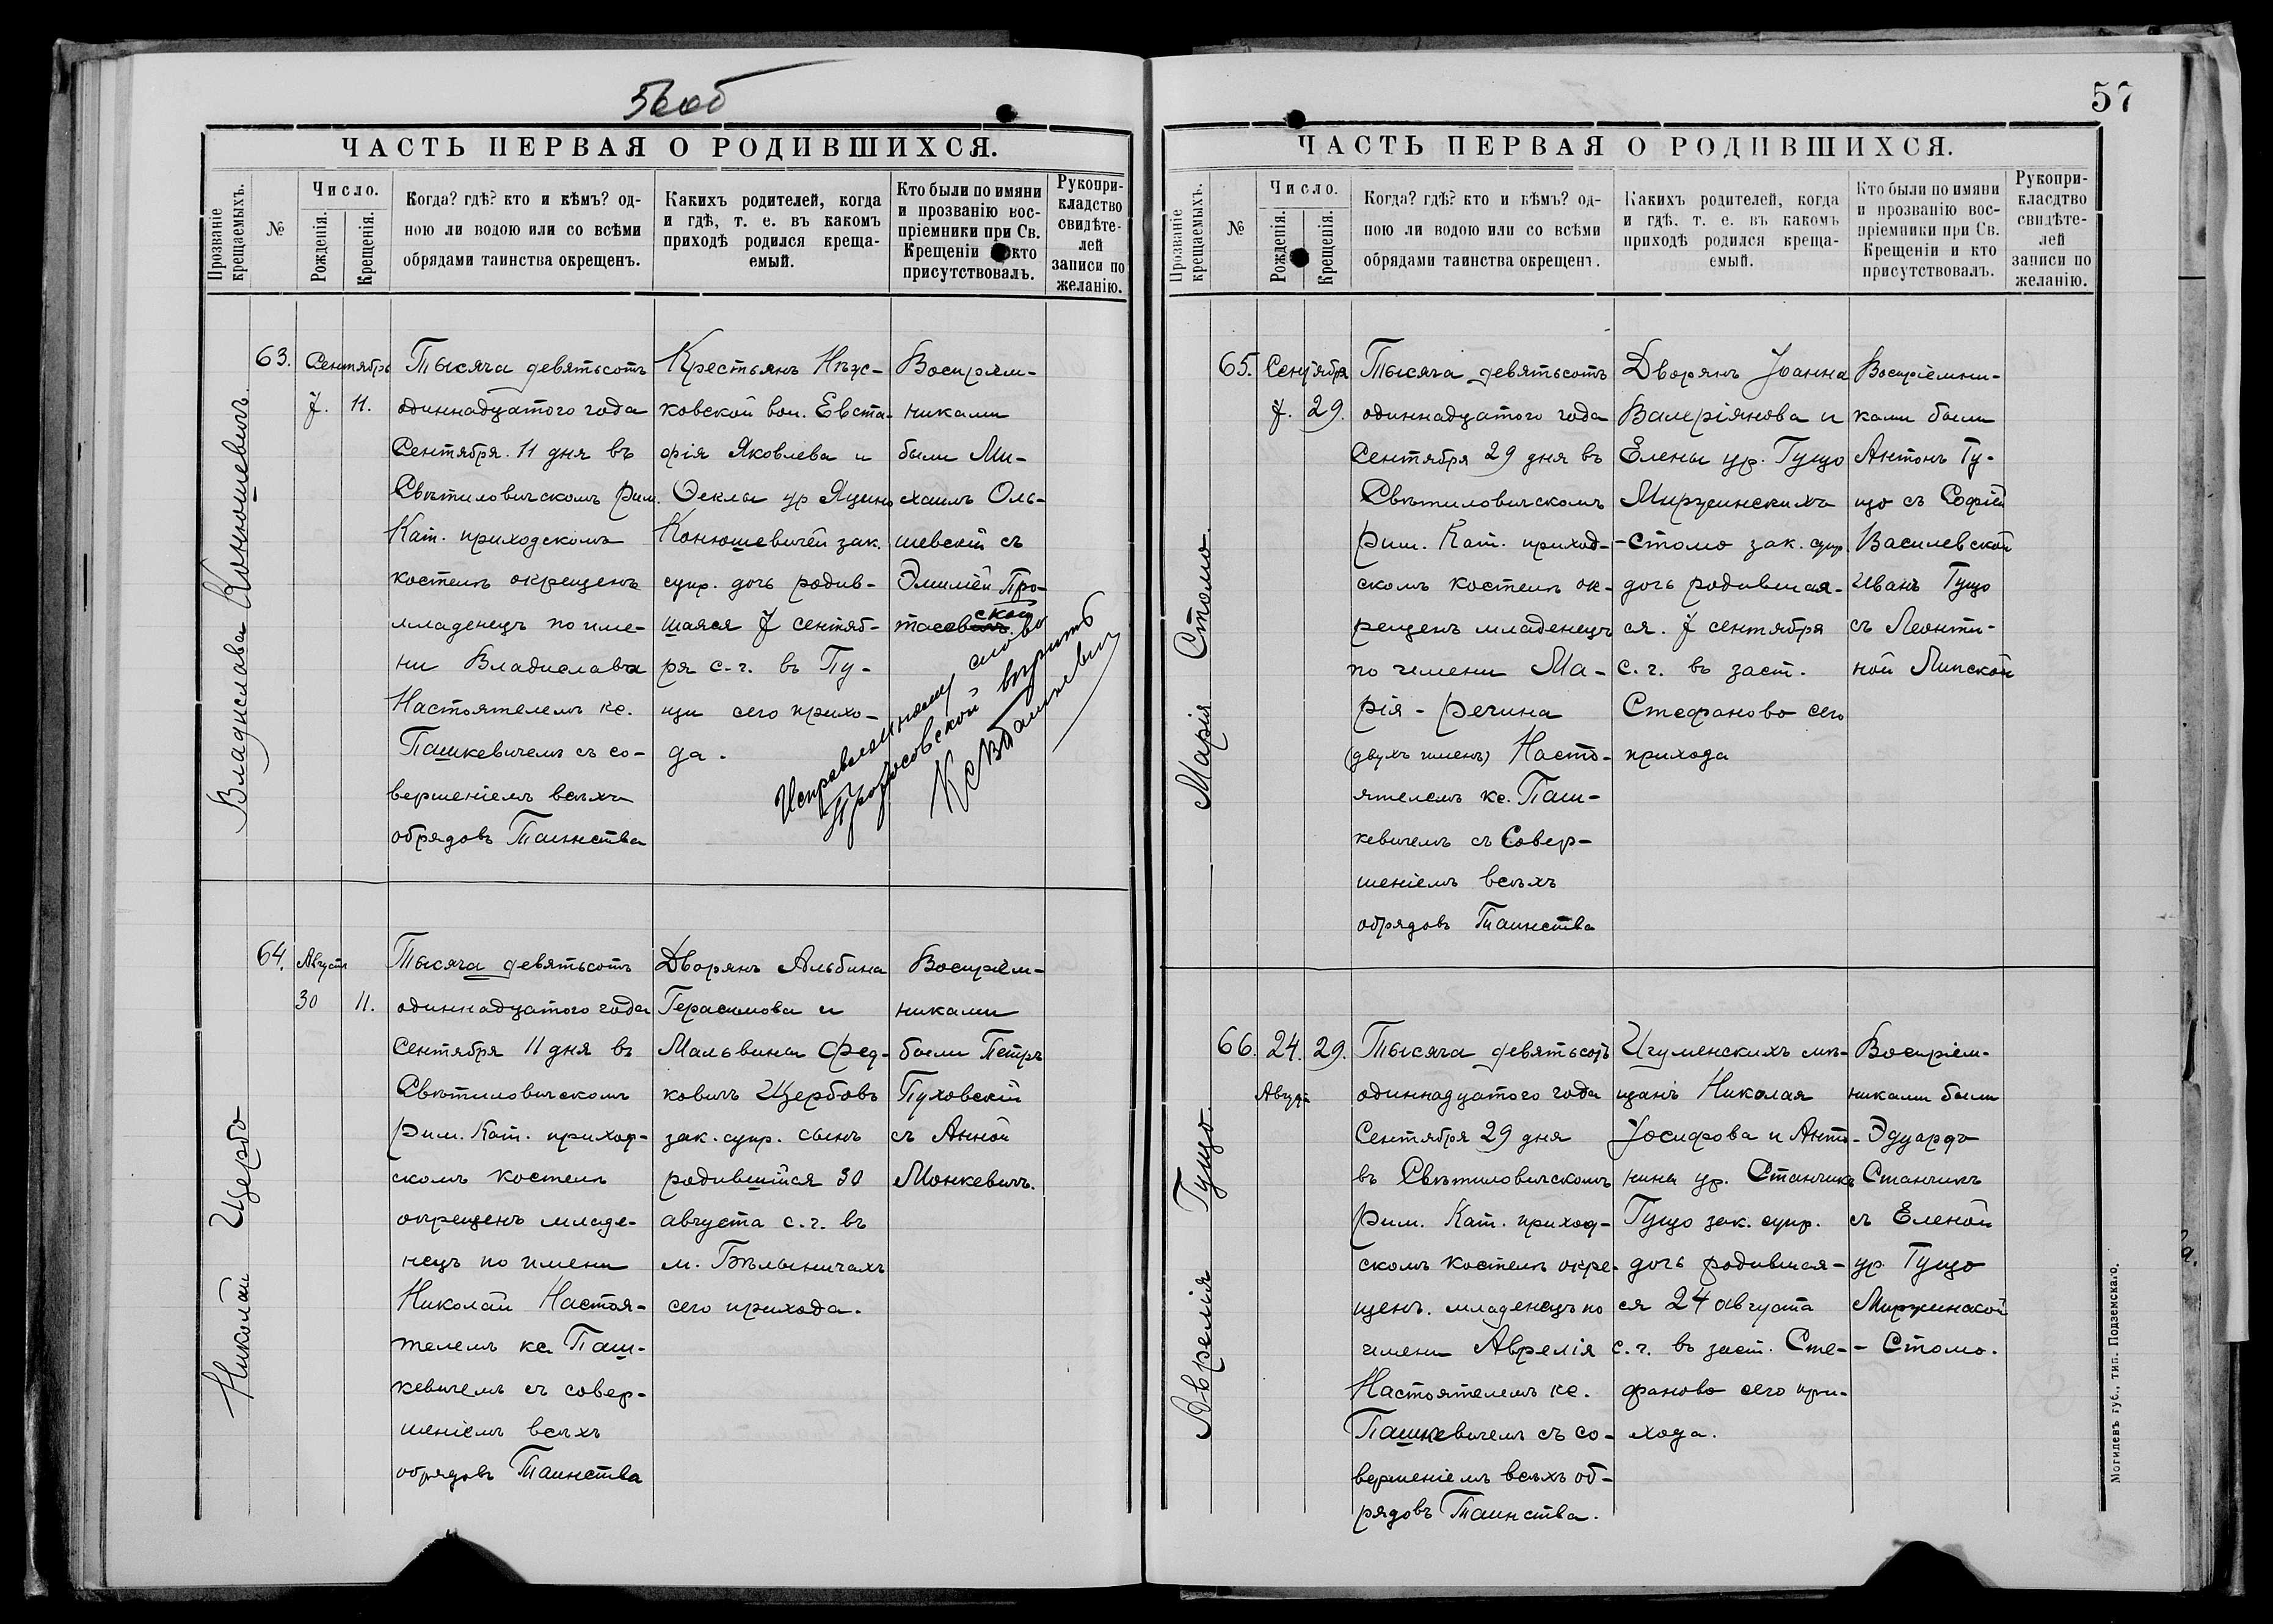 56 об
ЧАСТЬ ПЕРВАЯ О РОДИВШИХСЯ.
Прозваніе крещаемыхъ.
№
Число.
Рожденія.
Крещенія.
Когда? гдѣ? кто и кѣмъ? од-
ною ли водою или со всѣми
обрядами таинства окрещенъ.
Какихъ родителей, когда
и гдѣ, т. е. въ какомъ
приходѣ родился креща-
емый.
Кто были по имяни
и прозванію вос-
пріемники при Св.
Крещеніи и кто
присутствовалъ.
Рукопри-
кладство
свидѣте-
лей
записи по
желанію.
Владислава Конюшевичъ
63.
Сентябрь
7. 11.
Тысяча девятьсотъ
одиннадцатого года
Сентября 11 дня въ
Свѣтиловичскомъ Рим.
Кат. приходскомъ
костелѣ окрещенъ
младенецъ по име-
ни Владислава
Настоятелемъ кс.
Пашкевичемъ съ со-
вершеніемъ всѣхъ
обрядовъ Таинства
Крестьянъ
ковской вол. Евста-
фія Яковлева и
Феклы ур Яцыно
Конюшевичей зак.
супр. дочь родив-
шаяся 7 сентяб-
ря с.г. въ Пу-
щи сего прихо-
да.
Воспріем-
никами
были Ми-
хаилъ Оль-
шевскій съ
Эмиліей Про-
тасевичъ
ской
Исправленному слово
"Протосовской" вѣрить
Кс В Пашкевичъ
Николай Щербо
64.
Август
30 11.
Тысяча девятьсотъ
одиннадцатого года
Сентября 11 дня въ
Свѣтиловичскомъ
Рим. Кат. приход-
скомъ костелѣ
окрещенъ младе-
нецъ по имени
Николай Настоя-
телемъ кс. Паш-
кевичемъ съ совер-
шеніемъ всѣхъ
обрядовъ Таинства
Дворянъ Альбина
Герасимова и
Мальвины Фед-
ковичъ Щербовъ
зак. супр. сынъ
родившійся 30
августа с.г. въ
м. Бѣлыничахъ
сего прихода.
Воспріем-
никами
были Петръ
Пуховскій
съ Анной
Монкевичъ.
57
ЧАСТЬ ПЕРВАЯ О РОДИВШИХСЯ.
Прозваніе крещаемыхъ.
№
Число.
Рожденія.
Крещенія.
Когда? гдѣ? кто и кѣмъ? од-
ною ли водою или со всѣми
обрядами таинства окрещенъ.
Какихъ родителей, когда
и гдѣ, т. е. въ какомъ
приходѣ родился креща-
емый.
Кто были по имяни
и прозванію вос-
пріемники при Св.
Крещеніи и кто
присутствовалъ.
Рукопри-
кладство
свидѣте-
лей
записи по
желанію.
Марія Стомо.
65.
Сентября
7. 29.
Тысяча девятьсотъ
одиннадцатого года
Сентября 29 дня въ
Свѣтиловичскомъ
Рим. Кат. приход-
скомъ костелѣ ок-
рещенъ младенецъ
по имени Ма-
рія - Речина
(двухъ именъ) Насто-
ятелемъ кс. Паш-
кевичемъ съ Совер-
шеніемъ всѣхъ
обрядовъ Таинства
Дворянъ Іоанна
Валеріянова и
Елены ур. Гущо
Миржинскихъ
-Стомо зак. супр.
дочь родившая-
ся. 7 сентября
с.г. въ заст.
Стефаново сего
прихода
Воспріемни-
ками были
Антонъ Гу-
що съ Софіей
Василевской
Иванъ Гущо
съ Леонти-
ной Липской
Аврелія Гущо.
66.
24. 29.
Август
Тысяча девятьсотъ
одиннадцатого года
Сентября 29 дня
въ Свѣтиловичскомъ
Рим. Кат. приход-
скомъ костелѣ окре-
щенъ. младенецъ по
имени Аврелія
Настоятелемъ кс.
Пашкевичемъ съ со-
вершеніемъ всѣхъ об-
рядовъ Таинства.
Игуменскихъ мѣ-
щанъ Николая
Іосифова и Анто-
нины ур. Станчикъ
Гущо зак. супр.
дочь родившая-
ся 24 августа
с.г. въ заст. Сте-
фаново сего при-
хода.
Воспріем-
никами были
Эдуардъ
Станчикъ
съ Еленой
ур. Гущо
Миржинской
- Стомо.
Могилевъ губ., тип. Подземскаго.